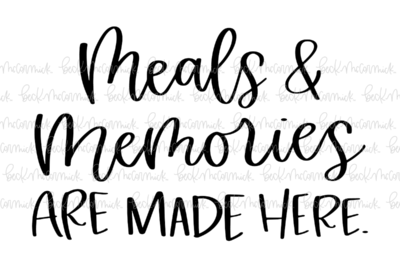 Meals &
Memories
ARE MADE HERE.